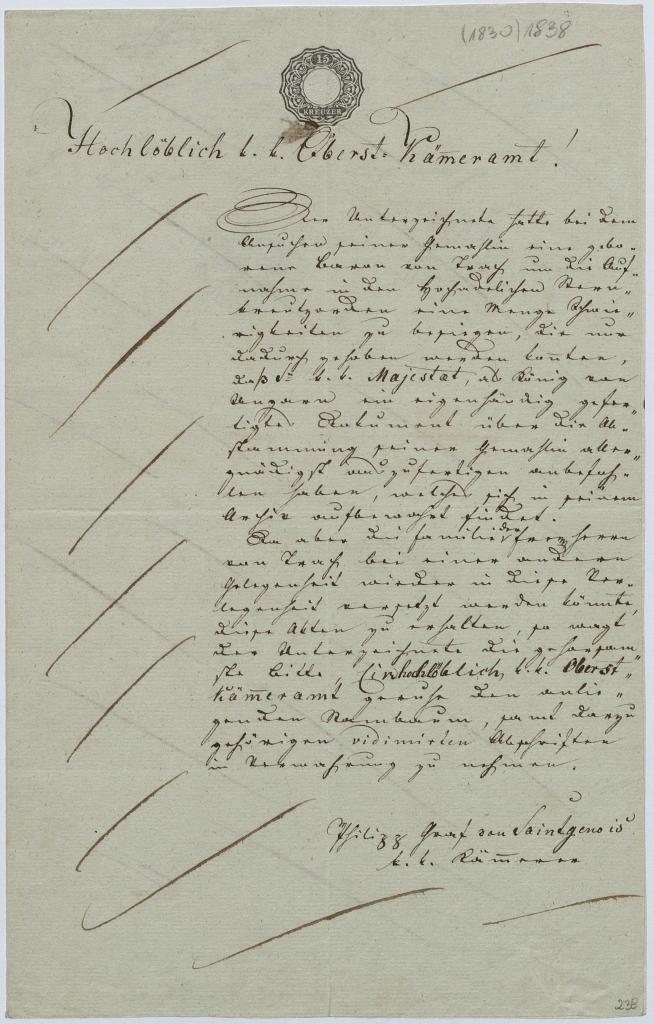 (1830) 1838
15
KREUZER
Hochlöblich k. k. Oberst-Kämeramt!
Der Unterzeichnete hatte bei dem
Ansuchen seiner Gemahlin eine gebo-
rene Baron von Trach um die Auf-
nahme in den Hochadelichen Stern-
kreutzorden eine Menge Schwie-
rigkeiten zu besiegen, die nur
dadurch gehoben werden konnten,
daß Se k. k. Majestät, als König von
Ungarn ein eigenhändig gefer-
tigtes Dokument über die Ab-
stammung seiner Gemahlin aller-
gnädigst auszufertigen anbefoh-
len haben, welches sich in seinem
Archiv aufbewahrt findet.
Da aber die Familie der Freyherrn
von Trach bei einer andern
Gelegenheit wieder in diese Ver-
legenheit versetzt werden könnte,
diese Akten zu erhalten, so wagt
der Unterzeichnete die gehorsam-
ste Bitte, Ein hochlöblich k. k. Oberst-
Kämeramt geruhe den anlie-
genden Stambaum, samt dazu
gehörigen vidimirten Abschriften
in Verwahrung zu nehmen.
Philipp Graf von Saintgenois
k. k. Kämerer
238